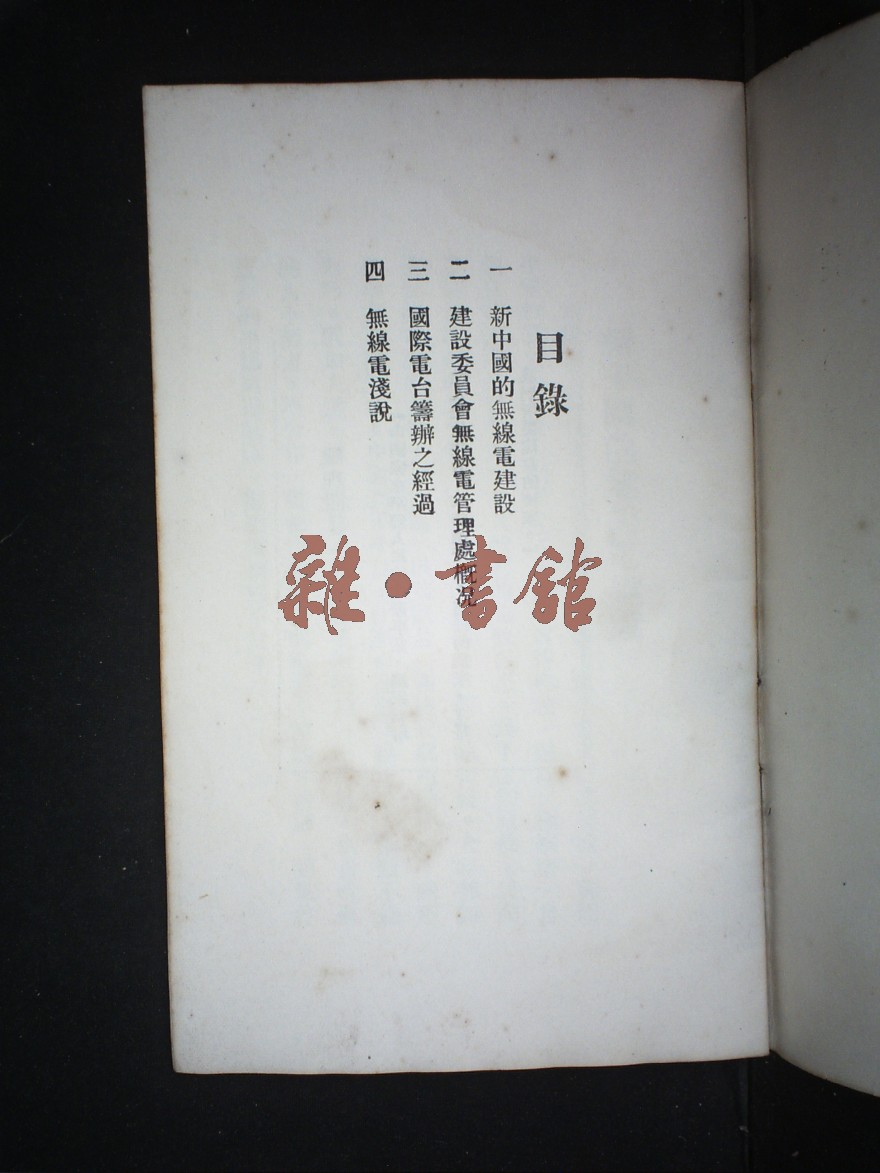 目錄
一 新中國的無線電建設
二 建設委員會無線電管理處概况
三 國際電台籌辦之經過
四 無線電淺說
雜·書館